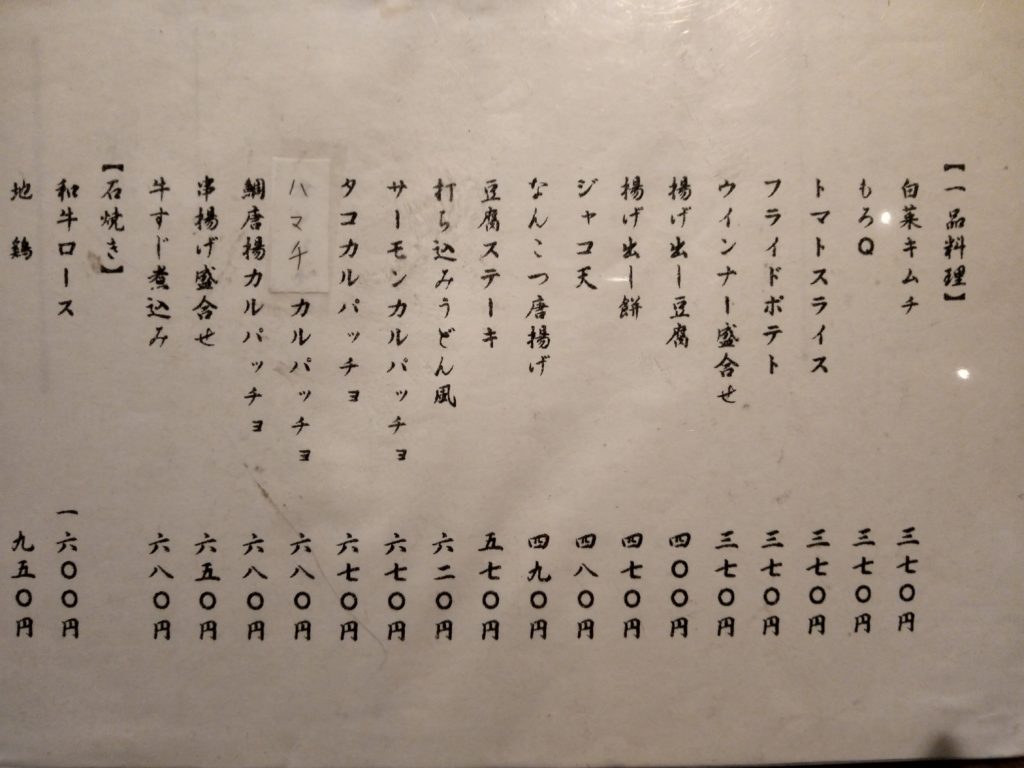 【一品料理】
白菜キムチ 三七〇円
もろQ 三七〇円
トマトスライス 三七〇円
フライドポテト 三七〇円
ウインナー盛合せ 三七〇円
揚げ出し豆腐 四〇〇円
揚げ出し餅 四七〇円
ジャコ天 四八〇円
なんこつ唐揚げ 四九〇円
豆腐ステーキ 五七〇円
打ち込みうどん風 六二〇円
サーモンカルパッチョ 六七〇円
タコカルパッチョ 六七〇円
ハマチカルパッチョ 六八〇円
鯛唐揚カルパッチョ 六八〇円
串揚げ盛合せ 六五〇円
牛すじ煮込み 六八〇円
【石焼き】
和牛ロース 一六〇〇円
地鶏 九五〇円